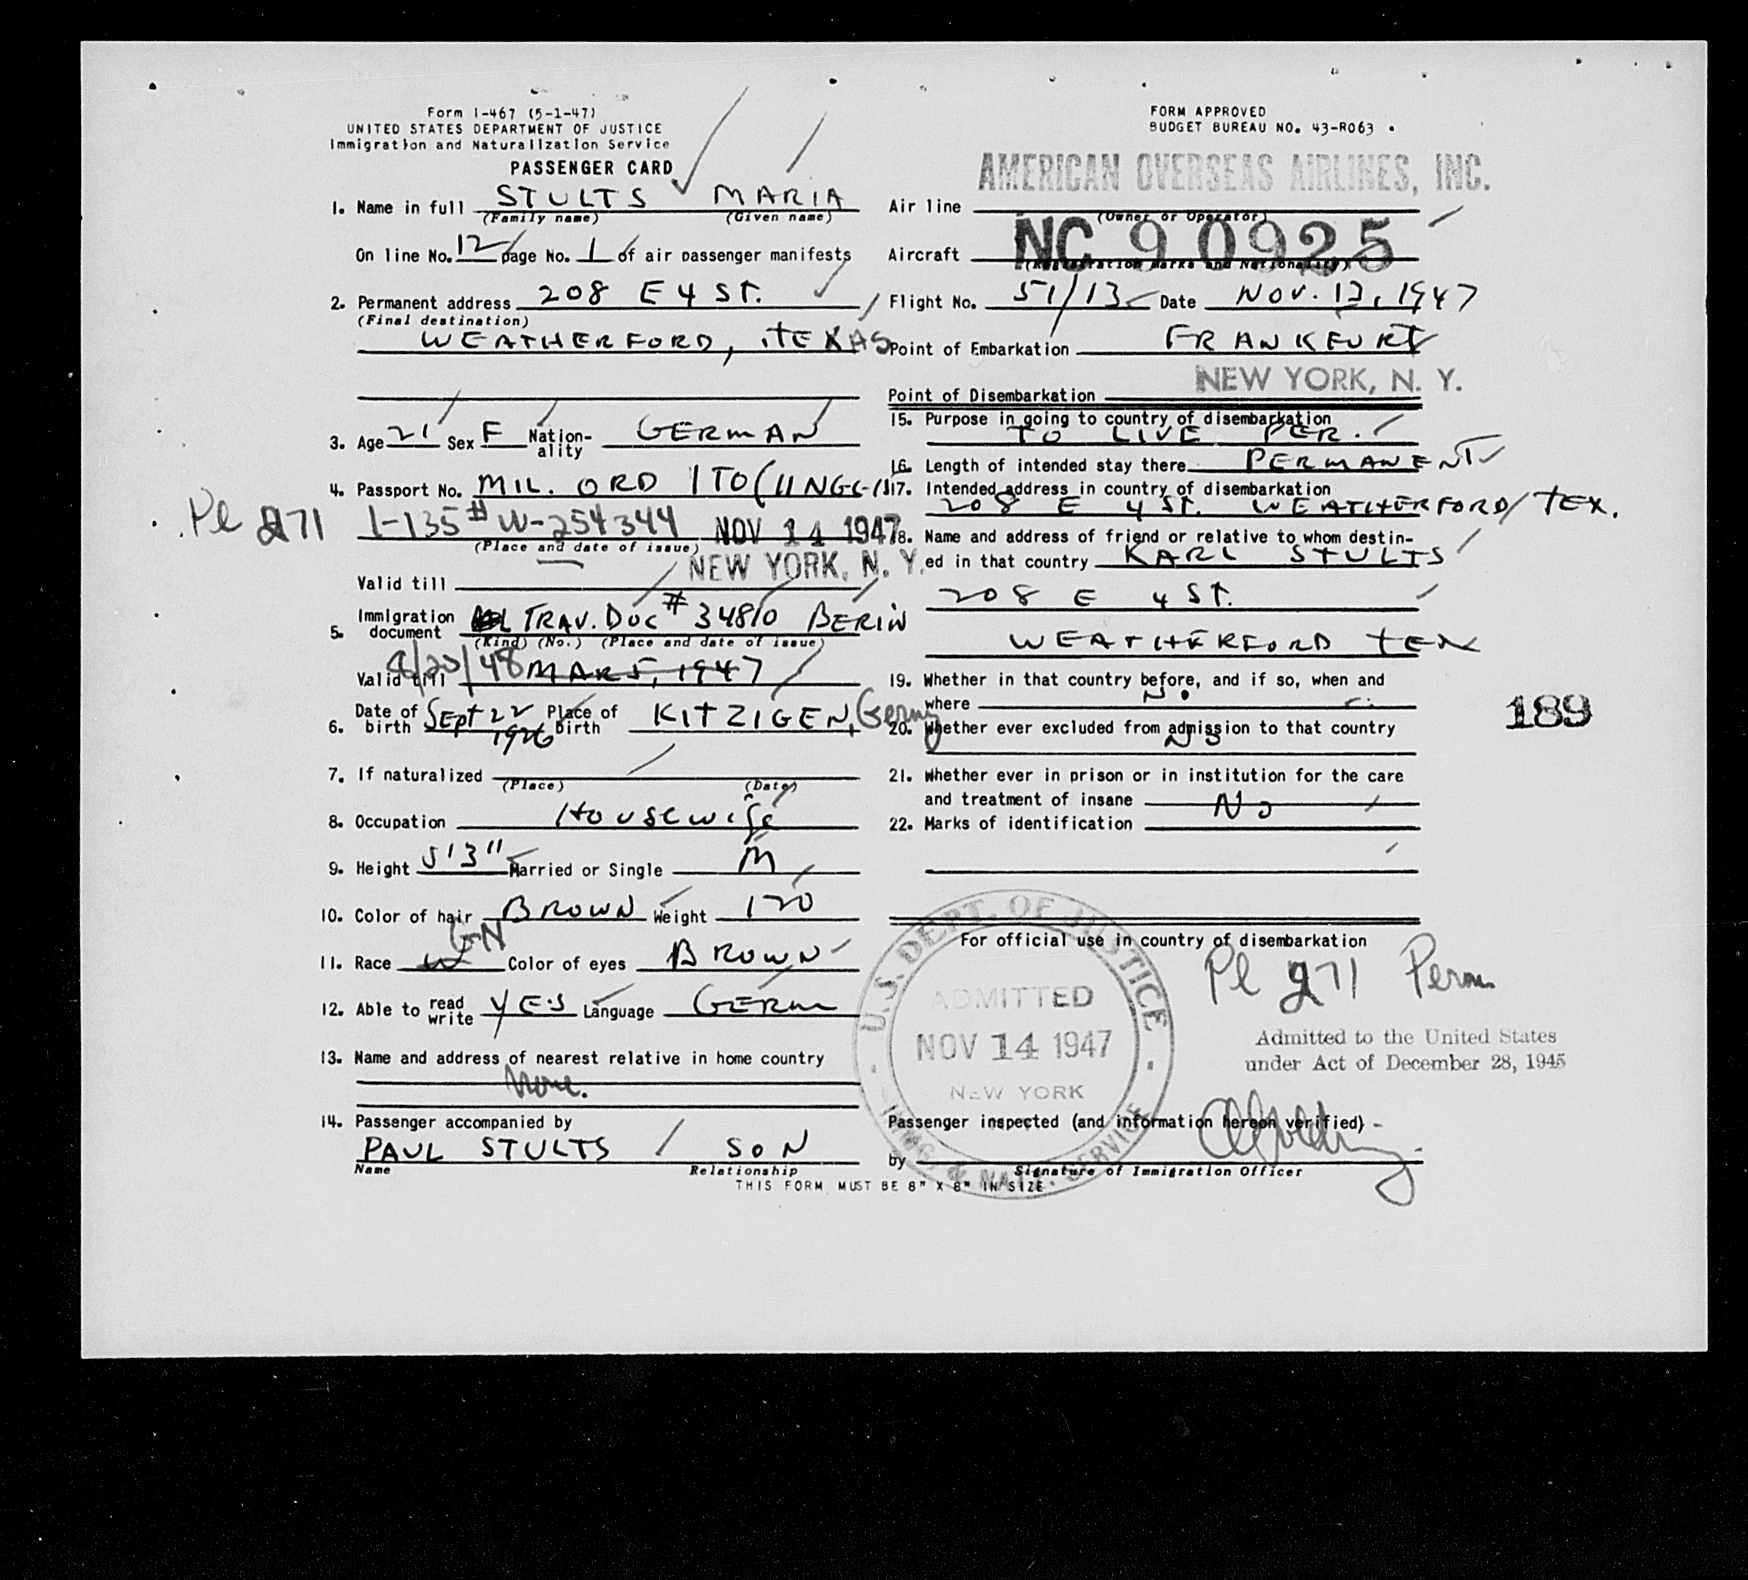 Form I-467 (5-1-47)
UNITED STATES DEPARTMENT OF JUSTICE
Immigration and Naturalization Service
PASSENGER CARD
1. Name in full STULTS MARIA
(Family name) (Given name)
On line No. 12 page No. 1 of air passenger manifests
2. Permanent address 208 E 4 ST.
(Final destination)
WEATHERFORD, TEXAS
3. Age 21 Sex F Nation-ality GERMAN
4. Passport No. MIL. ORD 1 TO
Pl 271 I-135 # W-254344 NOV 14 1947
(Place and date of issue)
NEW YORK, N. Y.
Valid till
5. Immigration document TRAV. DOC # 34810 BERIN
(Kind) (No.) (Place and date of issue)
Valid till 8/20/48 MAR 5, 1947
6. Date of birth SEPT 22 1926 Place of birth KITZIGEN, Germy
7. If naturalized
(Place) (Date)
8. Occupation Housewife
9. Height 5'3" Married or Single M
10. Color of hair BROWN Weight 120
GN
11. Race W Color of eyes BROWN
12. Able to read write YES Language GERM
13. Name and address of nearest relative in home country
None.
14. Passenger accompanied by
PAUL STULTS / SON
Name Relationship
THIS FORM MUST BE 8" X 8" IN SIZE
FORM APPROVED
BUDGET BUREAU NO. 43-R063 .
AMERICAN OVERSEAS AIRLINES, INC.
Air line
(Owner or Operator)
Aircraft NC 90925
(Registration Marks and Nationality)
Flight No. 51/13 Date NOV. 13, 1947
Point of Embarkation FRANKFURT
Point of Disembarkation NEW YORK, N. Y.
15. Purpose in going to country of disembarkation
TO LIVE PER.
16. Length of intended stay there PERMANENT
17. Intended address in country of disembarkation
208 E 4 ST. WEATHERFORD, TEX.
18. Name and address of friend or relative to whom destin-
ed in that country KARL STULTS
208 E 4 ST.
WEATHERFORD TEX
19. Whether in that country before, and if so, when and
where No.
20. Whether ever excluded from admission to that country
No
21. Whether ever in prison or in institution for the care
and treatment of insane No
22. Marks of identification
189
For official use in country of disembarkation
Pl 271 Perm
U.S. DEPT. OF JUSTICE
ADMITTED
NOV 14 1947
NEW YORK
IMMIG. & NAT. SERVICE
Admitted to the United States
under Act of December 28, 1945
Passenger inspected (and information hereon verified) -
by
Signature of Immigration Officer